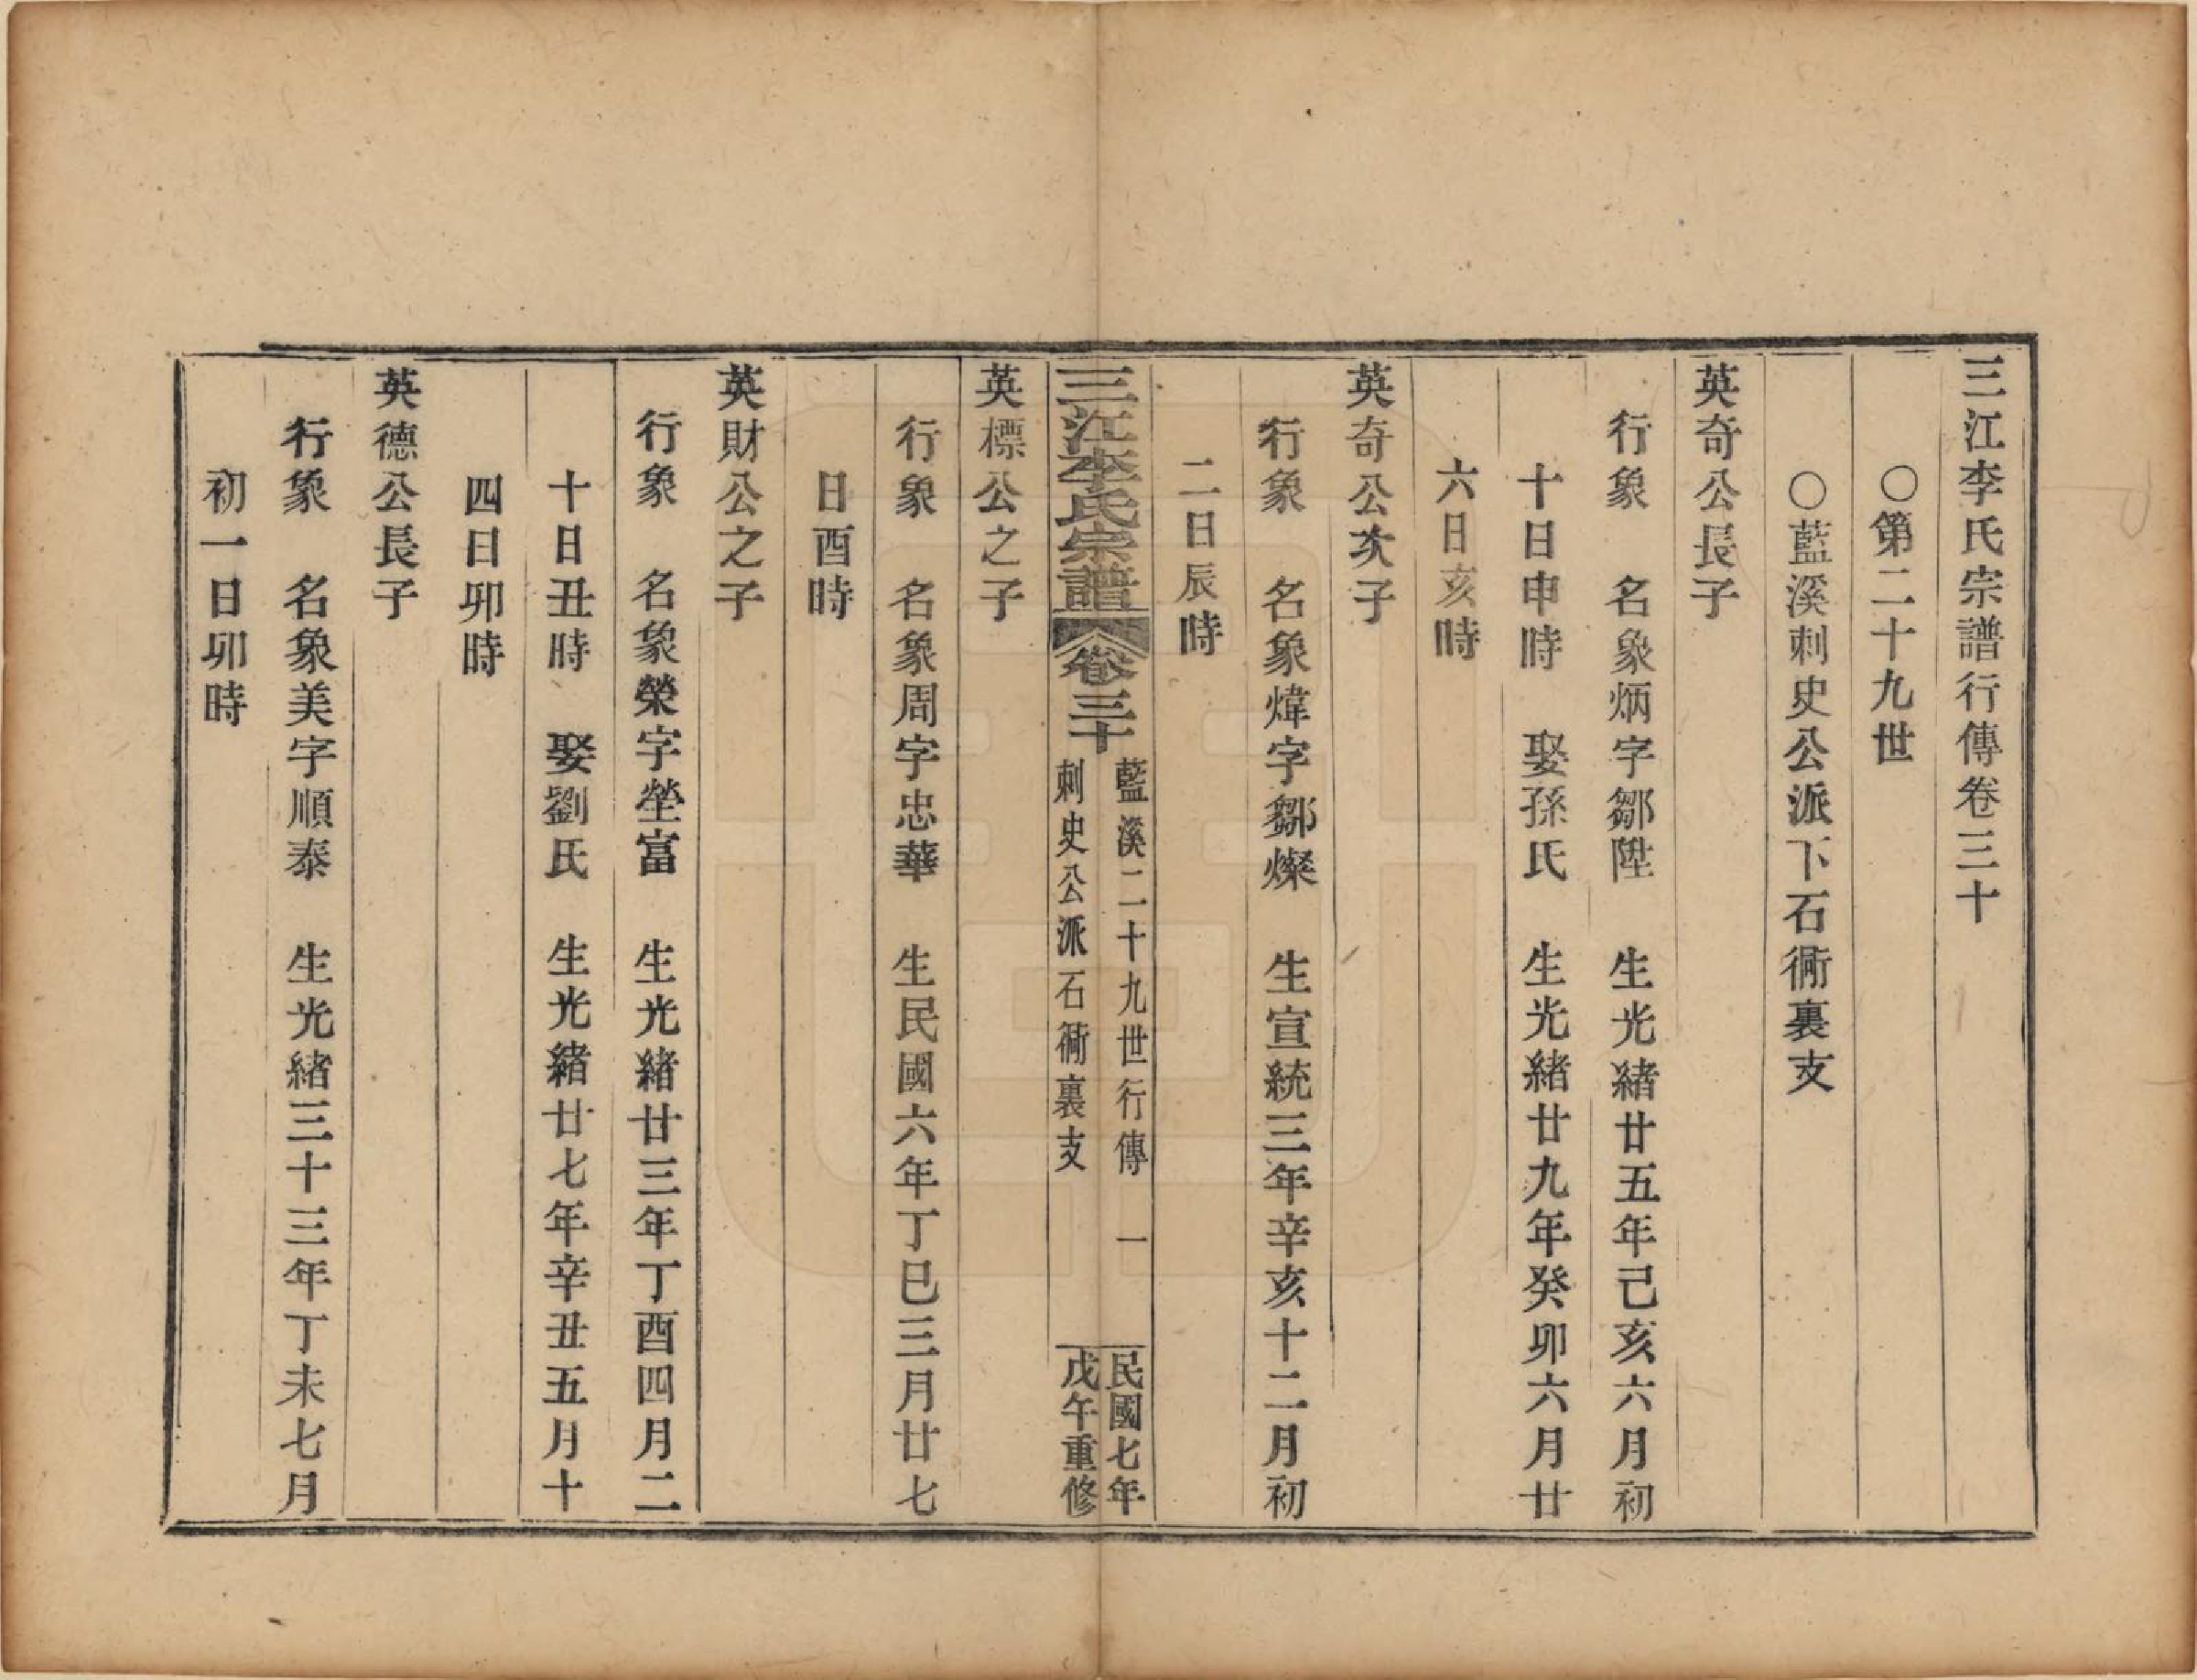 三江李氏宗譜行傳卷三十
○第二十九世
○藍溪刺史公派下石衕裏支
英奇公長子
行象 名象炳字鄒陞 生光緒廿五年己亥六月初
十日申時 娶孫氏 生光緒廿九年癸卯六月廿
六日亥時
英奇公次子
行象 名象煒字鄒燦 生宣統三年辛亥十二月初
二日辰時
三江李氏宗譜 卷三十
藍溪二十九世行傳 一
刺史公派石衕裏支
民國七年
戊午重修
英標公之子
行象 名象周字忠華 生民國六年丁巳三月廿七
日酉時
英財公之子
行象 名象榮字塋富 生光緒廿三年丁酉四月二
十日丑時 娶劉氏 生光緒廿七年辛丑五月十
四日卯時
英德公長子
行象 名象美字順泰 生光緒三十三年丁未七月
初一日卯時